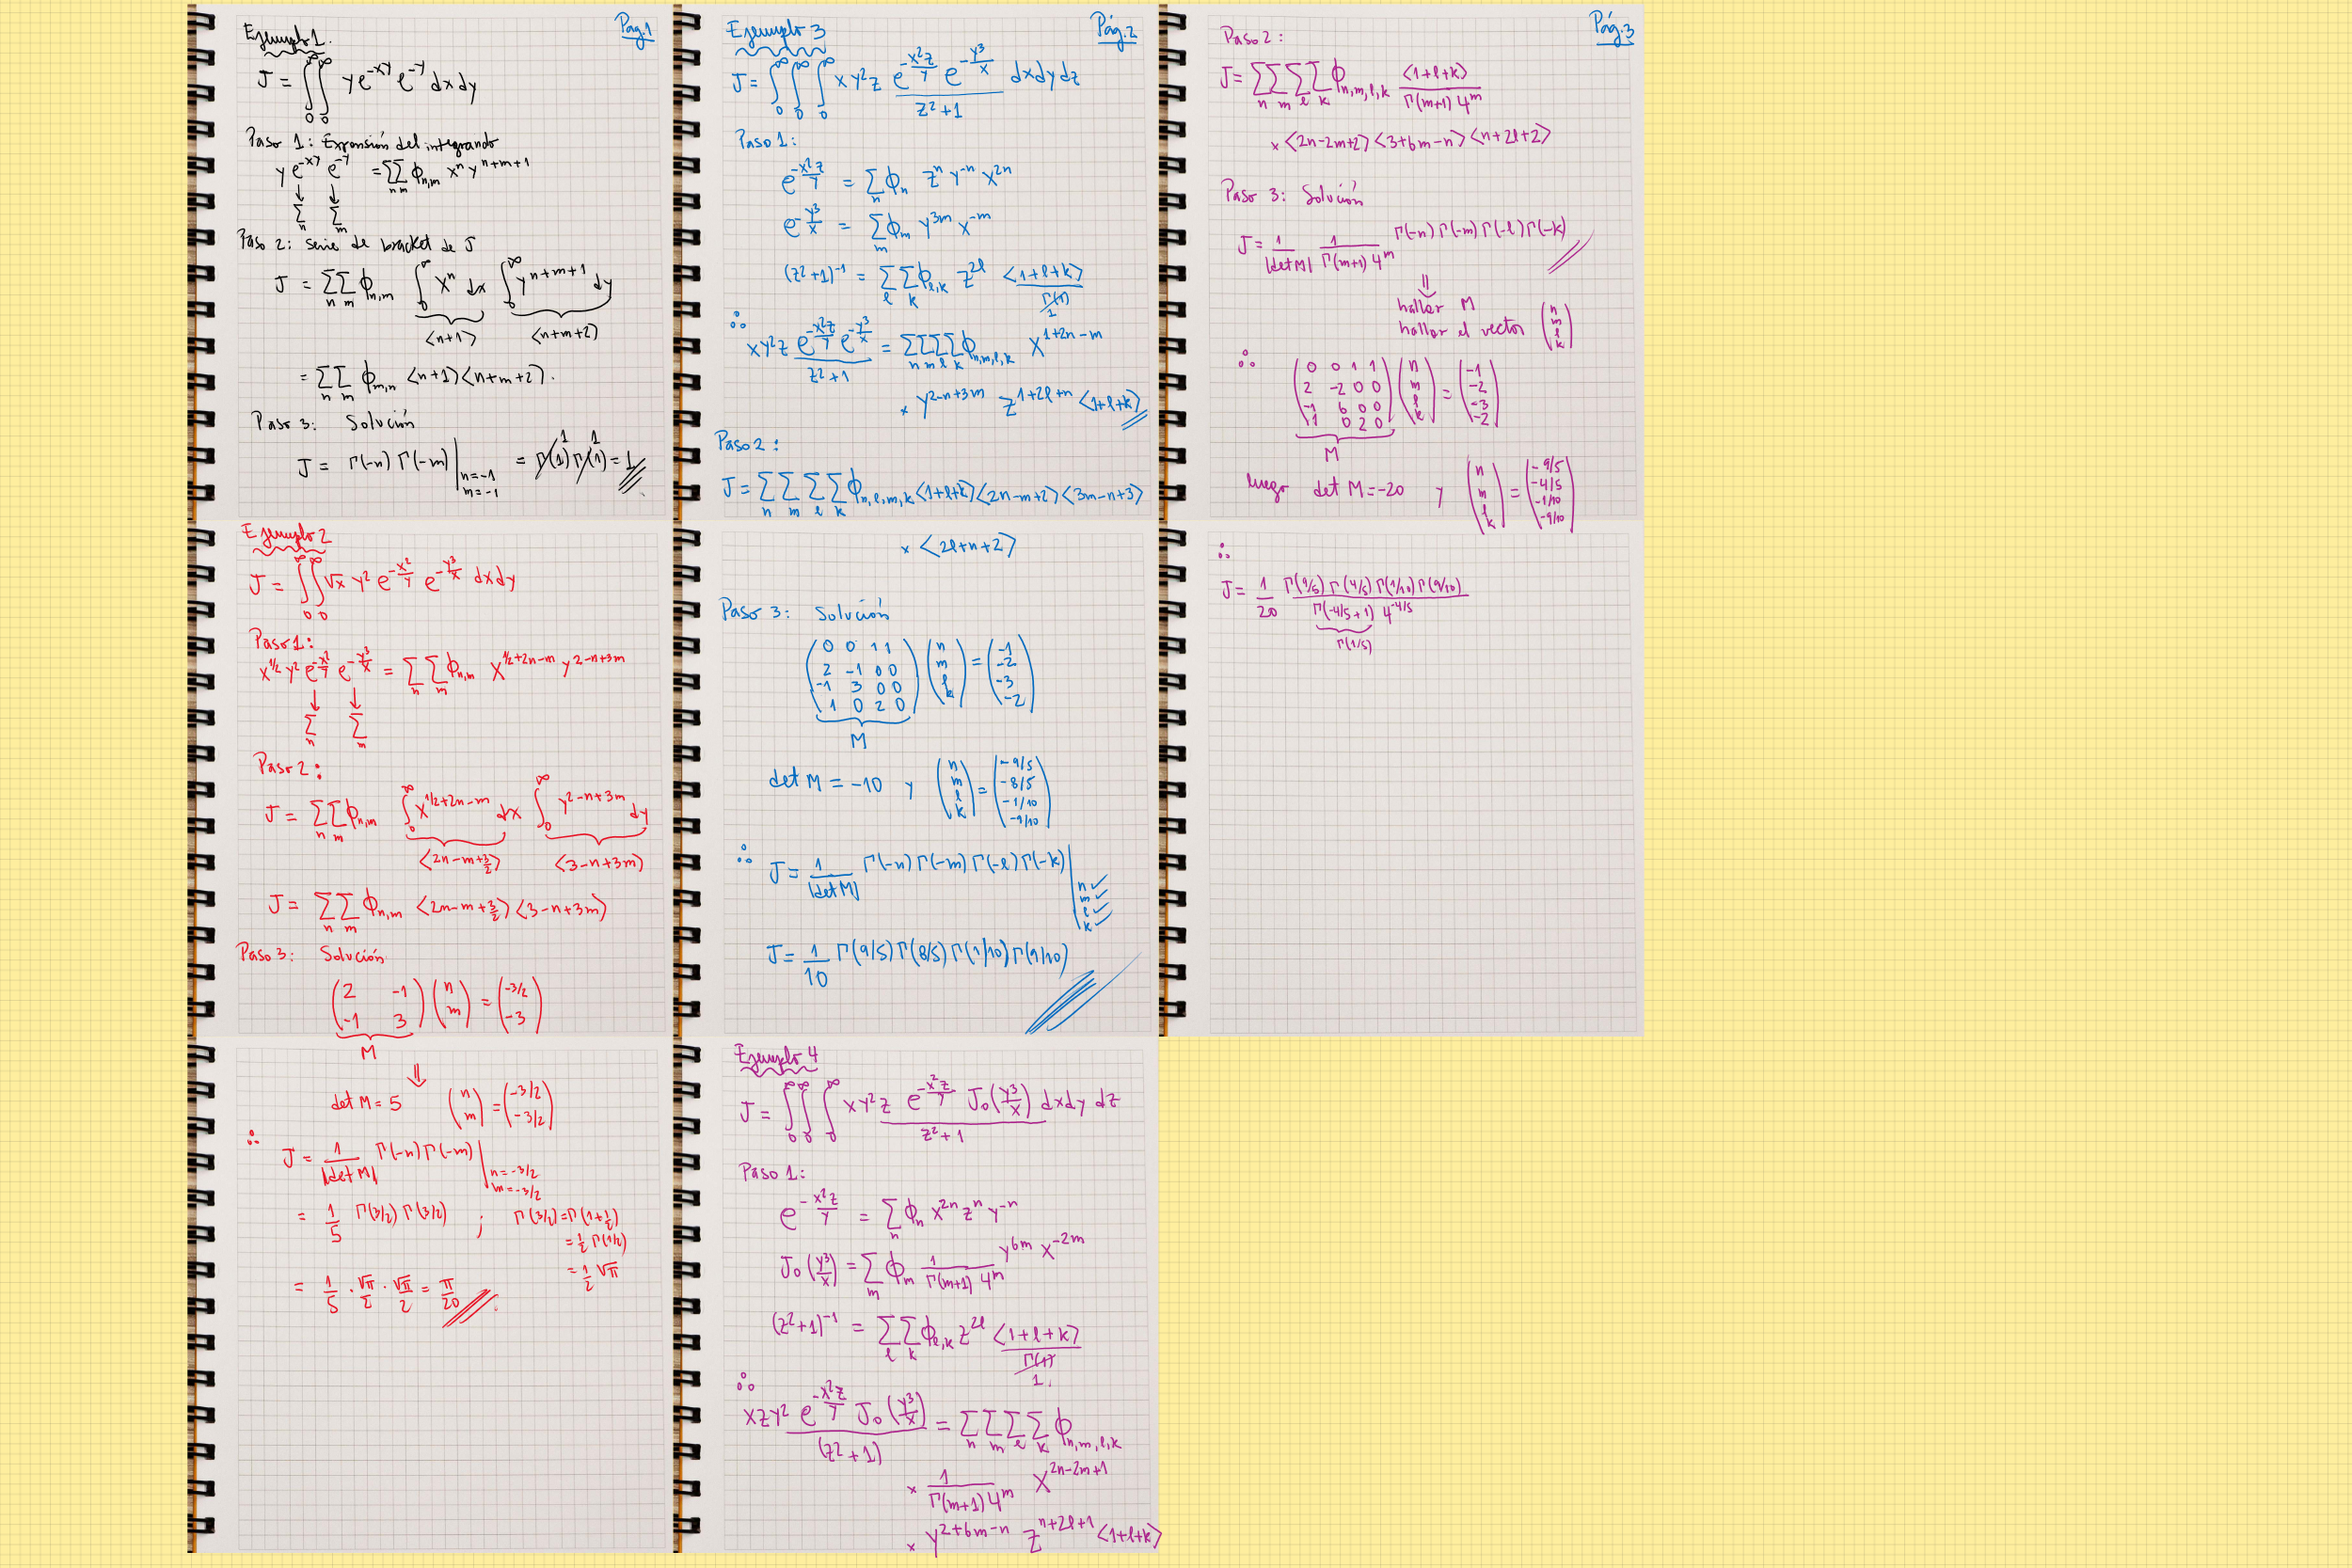 Pág.1
Ejemplo 1.
J = ∫₀^∞ ∫₀^∞ y e^{-xy} e^{-y} dx dy
Paso 1: Expansión del integrando
y e^{-xy} e^{-y} = Σ_n Σ_m ϕ_{n,m} x^n y^{n+m+1}
↓ ↓
Σ_n Σ_m
Paso 2: serie de bracket de J
J = Σ_n Σ_m ϕ_{n,m} ∫₀^∞ x^n dx ∫₀^∞ y^{n+m+1} dy
<n+1> <n+m+2>
= Σ_n Σ_m ϕ_{m,n} <n+1><n+m+2>.
Paso 3: Solución
J = Γ(-n) Γ(-m) |_{n=-1, m=-1} = Γ(1) Γ(1) = 1
1 1
Ejemplo 2
J = ∫₀^∞ ∫₀^∞ √x y² e^{-x²/y} e^{-y³/x} dx dy
Paso 1:
x^{1/2} y² e^{-x²/y} e^{-y³/x} = Σ_n Σ_m ϕ_{n,m} x^{1/2+2n-m} y^{2-n+3m}
↓ ↓
Σ_n Σ_m
Paso 2:
J = Σ_n Σ_m ϕ_{n,m} ∫₀^∞ x^{1/2+2n-m} dx ∫₀^∞ y^{2-n+3m} dy
<2n-m+3/2> <3-n+3m>
J = Σ_n Σ_m ϕ_{n,m} <2n-m+3/2><3-n+3m>
Paso 3: Solución
(2 -1; -1 3) (n; m) = (-3/2; -3)
M
⇓
det M = 5 (n; m) = (-3/2; -3/2)
∴ J = 1/|det M| Γ(-n) Γ(-m) |_{n=-3/2, m=-3/2}
= 1/5 Γ(3/2) Γ(3/2) ; Γ(3/2) = Γ(1+1/2)
= 1/2 Γ(1/2)
= 1/2 √π
= 1/5 · √π/2 · √π/2 = π/20
Pág.2
Ejemplo 3
J = ∫₀^∞ ∫₀^∞ ∫₀^∞ x y² z e^{-x²z/y} e^{-y³/x} / (z²+1) dx dy dz
Paso 1:
e^{-x²z/y} = Σ_n ϕ_n z^n y^{-n} x^{2n}
e^{-y³/x} = Σ_m ϕ_m y^{3m} x^{-m}
(z²+1)^{-1} = Σ_l Σ_k ϕ_{l,k} z^{2l} <1+l+k> / Γ(1)
1
∴ x y² z e^{-x²z/y} e^{-y³/x} / (z²+1) = Σ_n Σ_m Σ_l Σ_k ϕ_{n,m,l,k} x^{1+2n-m}
× y^{2-n+3m} z^{1+2l+n} <1+l+k>
Paso 2:
J = Σ_n Σ_m Σ_l Σ_k ϕ_{n,l,m,k} <1+l+k><2n-m+2><3m-n+3>
× <2l+n+2>
Paso 3: Solución
(0 0 1 1; 2 -1 0 0; -1 3 0 0; 1 0 2 0) (n; m; l; k) = (-1; -2; -3; -2)
M
det M = -10 y (n; m; l; k) = (-9/5; -8/5; -1/10; -9/10)
∴ J = 1/|det M| Γ(-n) Γ(-m) Γ(-l) Γ(-k) | n✓ m✓ l✓ k✓
J = 1/10 Γ(9/5) Γ(8/5) Γ(1/10) Γ(9/10)
Ejemplo 4
J = ∫₀^∞ ∫₀^∞ ∫₀^∞ x y² z e^{-x²z/y} J₀(y³/x) / (z²+1) dx dy dz
Paso 1:
e^{-x²z/y} = Σ_n ϕ_n x^{2n} z^n y^{-n}
J₀(y³/x) = Σ_m ϕ_m 1/(Γ(m+1) 4^m) y^{6m} x^{-2m}
(z²+1)^{-1} = Σ_l Σ_k ϕ_{l,k} z^{2l} <1+l+k> / Γ(1)
1.
∴ x z y² e^{-x²z/y} J₀(y³/x) / (z²+1) = Σ_n Σ_m Σ_l Σ_k ϕ_{n,m,l,k}
× 1/(Γ(m+1) 4^m) x^{2n-2m+1}
× y^{2+6m-n} z^{n+2l+1} <1+l+k>
Pág.3
Paso 2:
J = Σ_n Σ_m Σ_l Σ_k ϕ_{n,m,l,k} <1+l+k> / (Γ(m+1) 4^m)
× <2n-2m+2><3+6m-n><n+2l+2>
Paso 3: Solución
J = 1/|det M| 1/(Γ(m+1) 4^m) Γ(-n) Γ(-m) Γ(-l) Γ(-k)
⇓
hallar M
hallar el vector (n; m; l; k)
∴ (0 0 1 1; 2 -2 0 0; -1 6 0 0; 1 0 2 0) (n; m; l; k) = (-1; -2; -3; -2)
M
luego det M = -20 y (n; m; l; k) = (-9/5; -4/5; -1/10; -9/10)
∴
J = 1/20 Γ(9/5) Γ(4/5) Γ(1/10) Γ(9/10) / (Γ(-4/5+1) 4^{-4/5})
Γ(1/5)